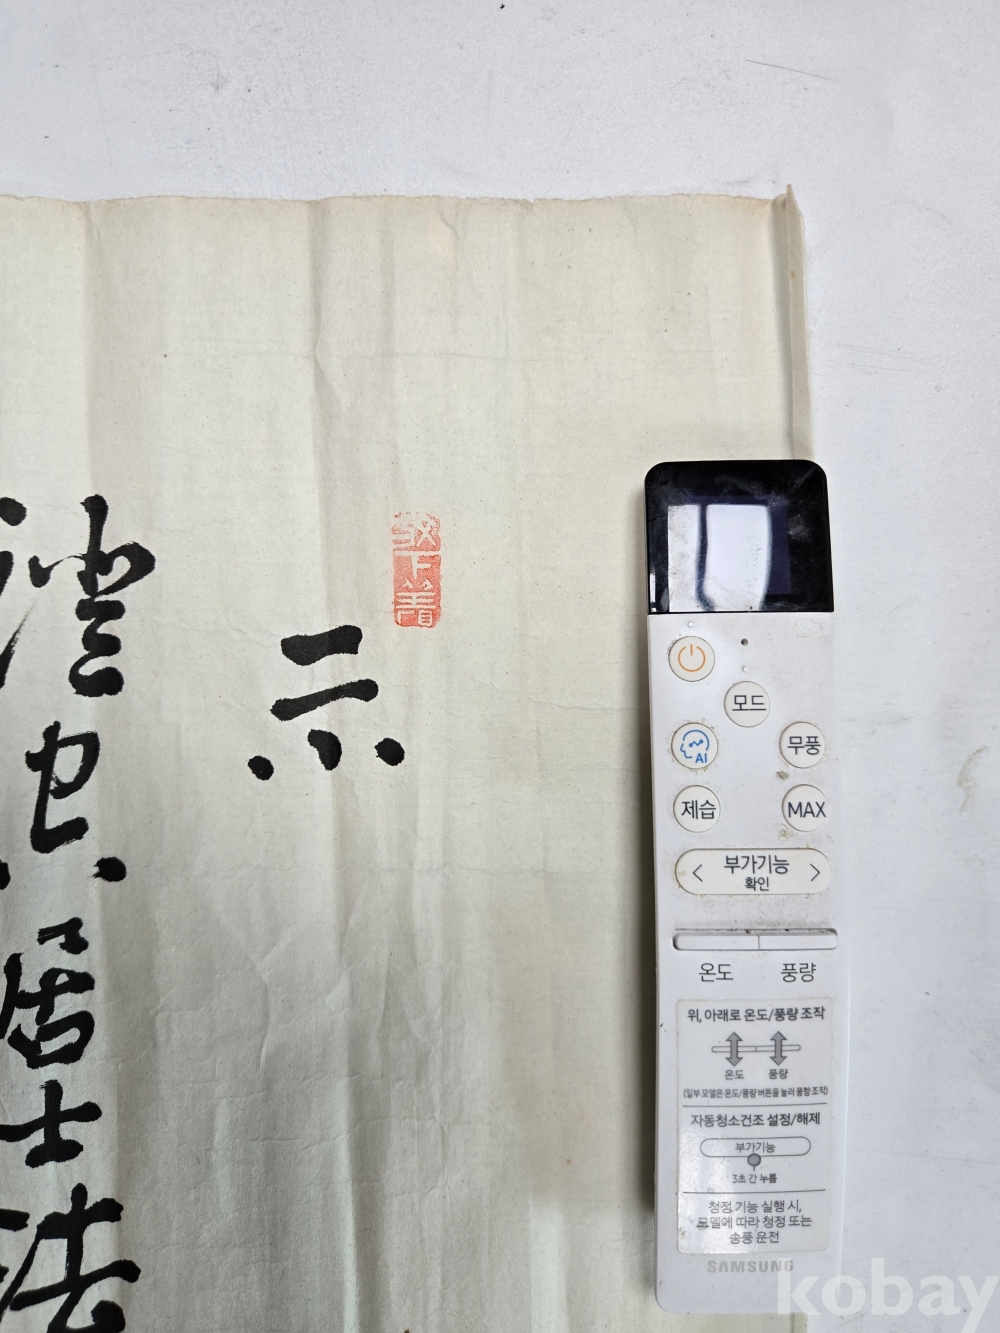 示
居士法
AI
모드
무풍
제습
MAX
< 부가기능 >
확인
온도 풍량
위, 아래로 온도/풍량 조작
온도 풍량
(일부 모델은 온도/풍량 버튼을 눌러 풍향 조작)
자동청소건조 설정/해제
부가기능
3초 간 누름
청정 기능 실행 시,
모델에 따라 청정 또는
송풍 운전
SAMSUNG
kobay